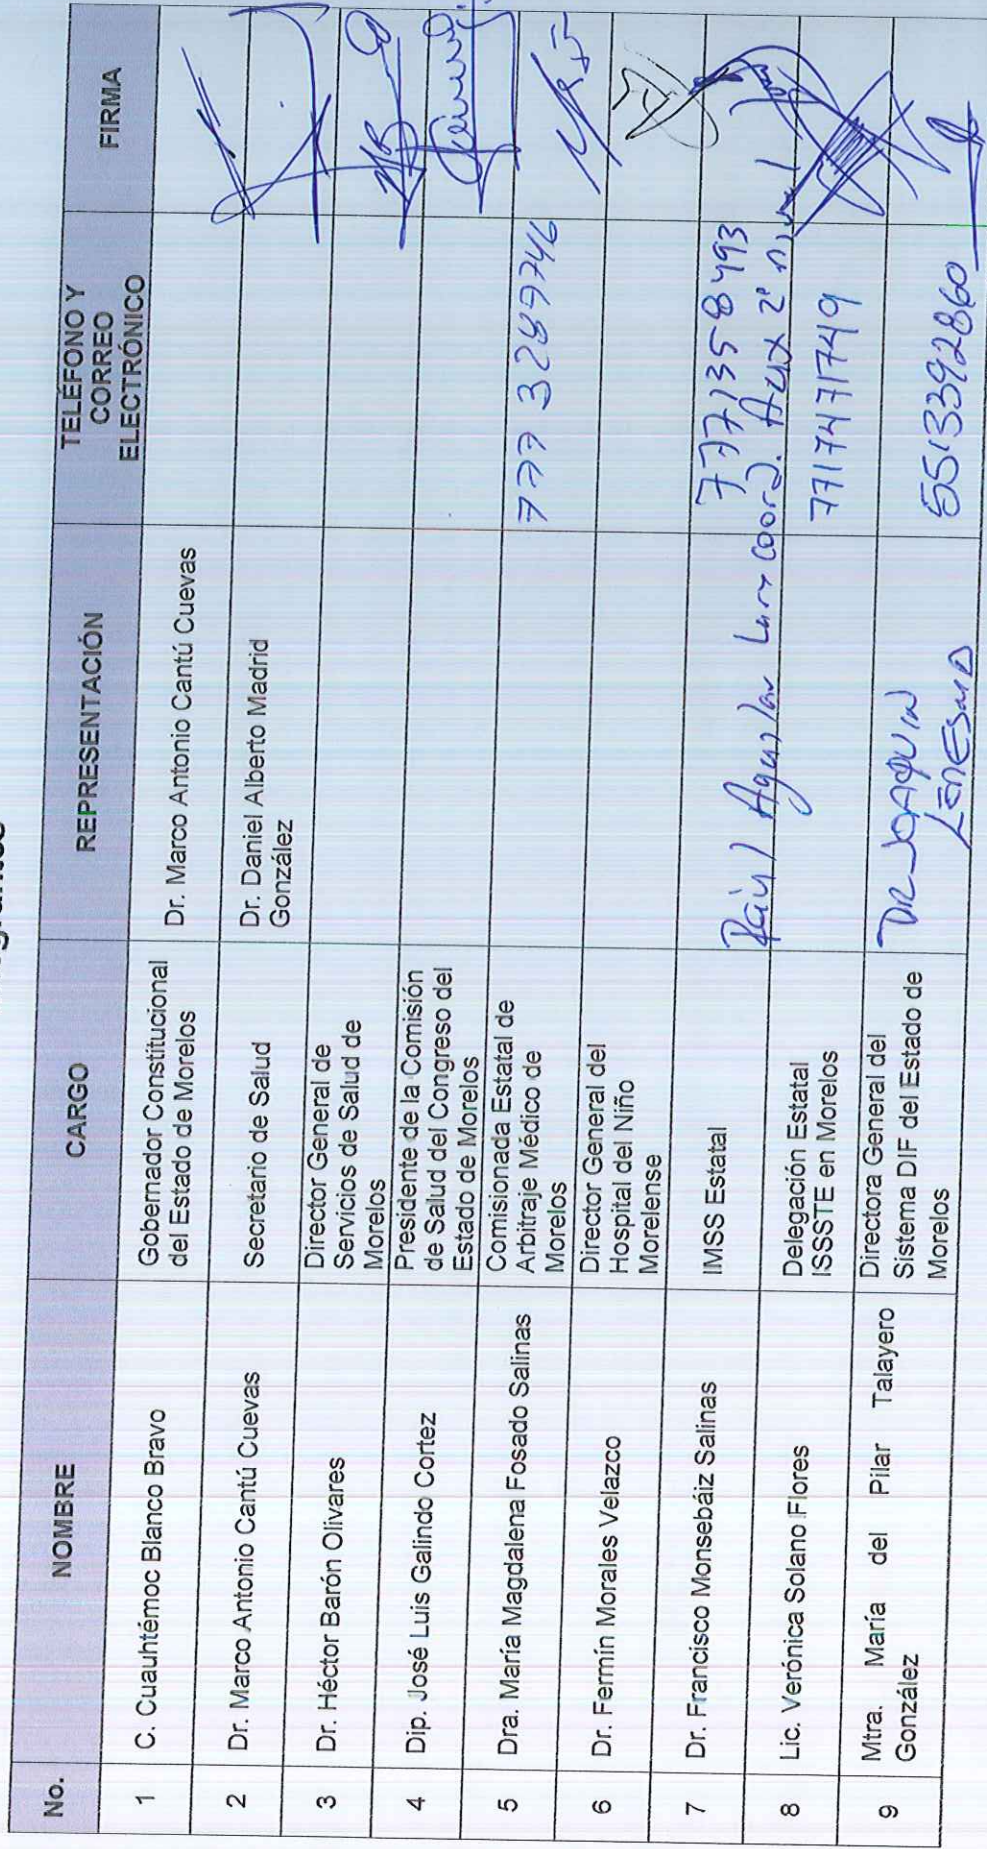 No.
NOMBRE
CARGO
REPRESENTACIÓN
TELÉFONO Y
CORREO
ELECTRÓNICO
FIRMA
1
C. Cuauhtémoc Blanco Bravo
Gobernador Constitucional
del Estado de Morelos
Dr. Marco Antonio Cantú Cuevas
2
Dr. Marco Antonio Cantú Cuevas
Secretario de Salud
Dr. Daniel Alberto Madrid
González
3
Dr. Héctor Barón Olivares
Director General de
Servicios de Salud de
Morelos
4
Dip. José Luis Galindo Cortez
Presidente de la Comisión
de Salud del Congreso del
Estado de Morelos
5
Dra. María Magdalena Fosado Salinas
Comisionada Estatal de
Arbitraje Médico de
Morelos
777 3289746
6
Dr. Fermín Morales Velazco
Director General del
Hospital del Niño
Morelense
7
Dr. Francisco Monsebáiz Salinas
IMSS Estatal
7771358493
Raúl Aguilar Coord. Aux 2º nivel
8
Lic. Verónica Solano Flores
Delegación Estatal
ISSSTE en Morelos
7717471749
9
Mtra. María del Pilar Talayero
González
Directora General del
Sistema DIF del Estado de
Morelos
DR JOAQUIN
5513392860